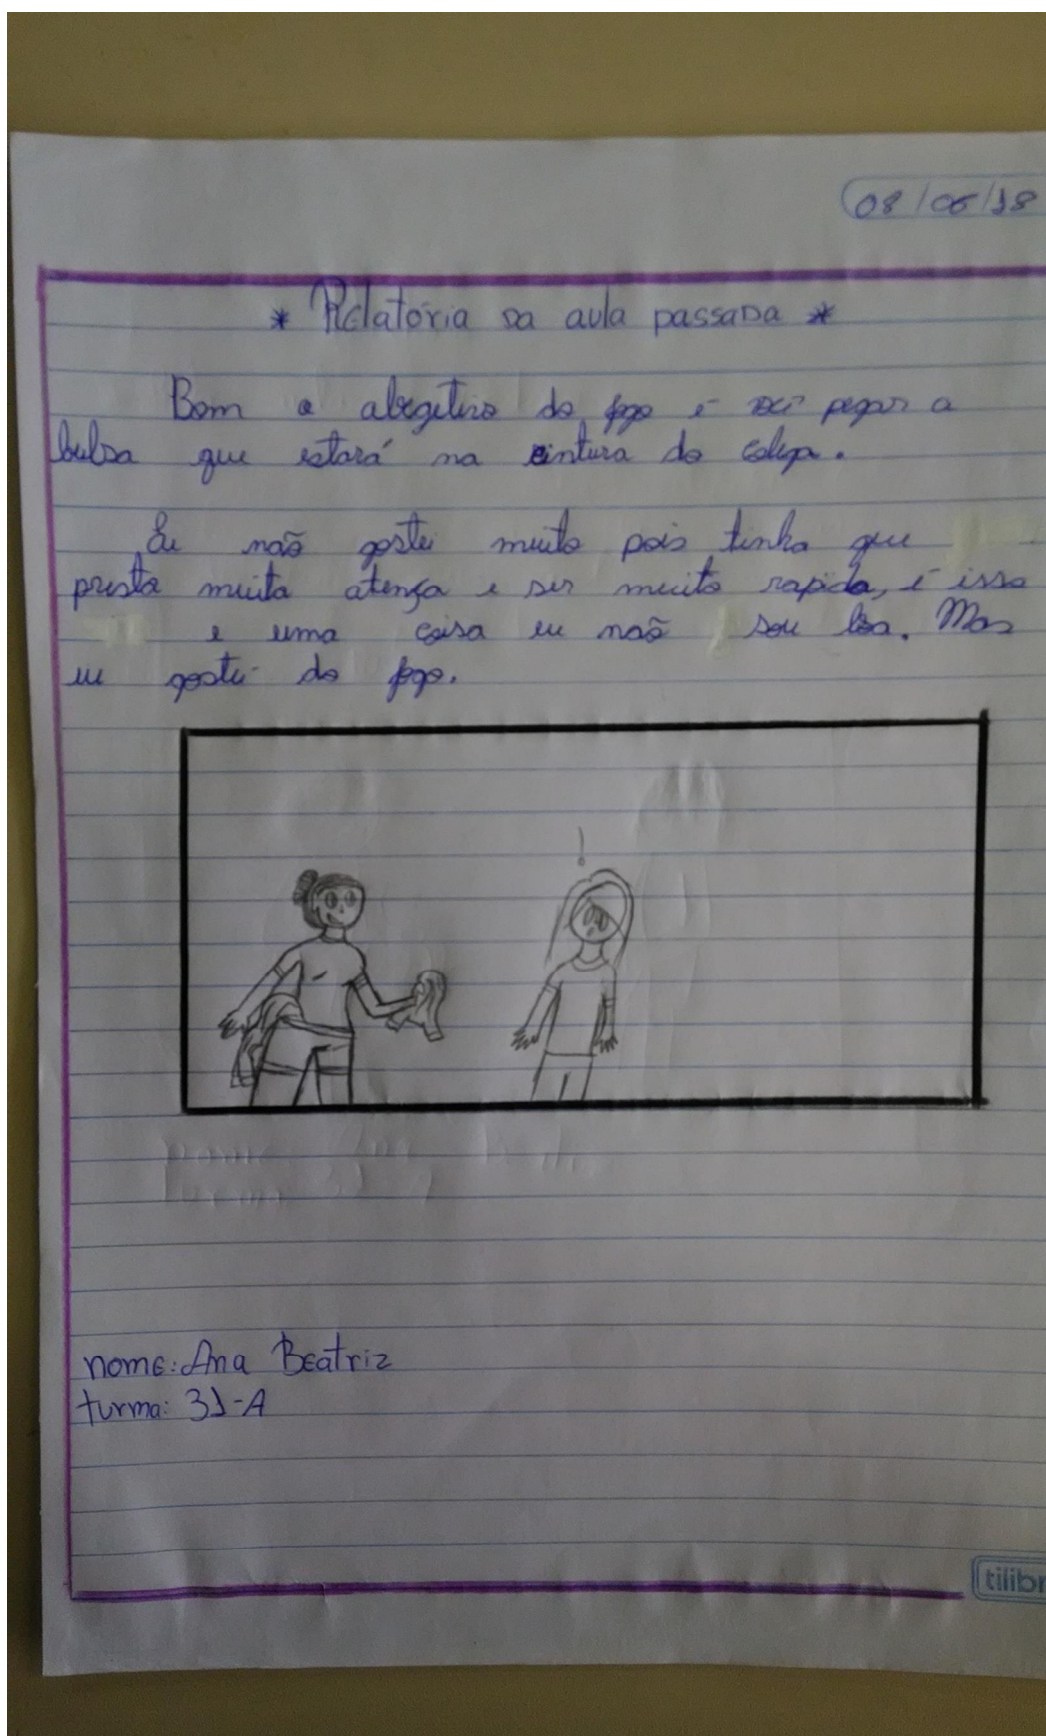 08/06/18
* Relatória da aula passada *
Bom o abegetivo do jogo é você pegar a
bulsa que estará na cintura do colega.
Eu não gostei muito pois tinha que
presta muita atença e ser muito rapida, é isso
e uma coisa eu não sou boa. Mas
eu gostei do jogo.
!
nome: Ana Beatriz
turma: 31-A
tilibr